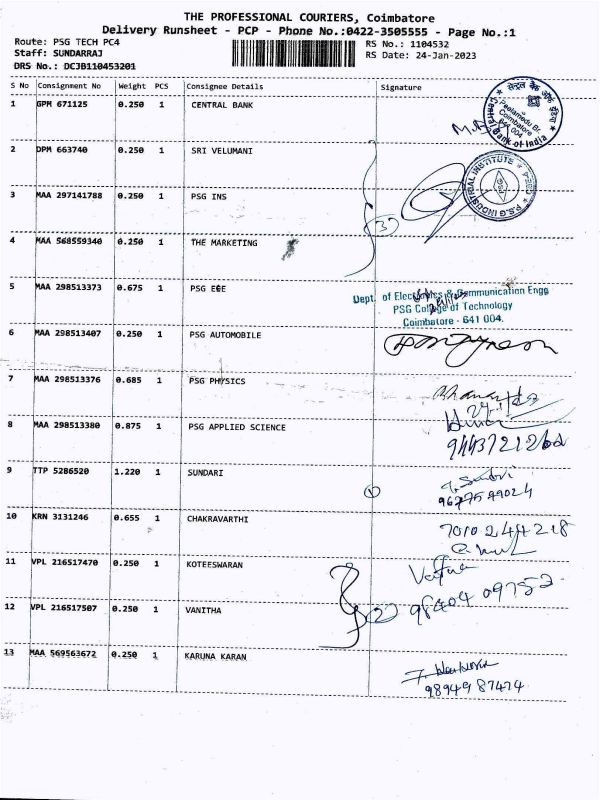 THE PROFESSIONAL COURIERS, Coimbatore
Delivery Runsheet - PCP - Phone No.:0422-3505555 - Page No.:1
Route: PSG TECH PC4
RS No.: 1104532
Staff: SUNDARRAJ
RS Date: 24-Jan-2023
DRS No.: DCJB110453201
S No Consignment No Weight PCS Consignee Details Signature
1 GPM 671125 0.250 1 CENTRAL BANK
सेन्ट्रल बैंक ऑफ इंडिया
Peelamedu Br.
Coimbatore
641 004.
Central Bank of India
2 DPM 663740 0.250 1 SRI VELUMANI
3 MAA 297141788 0.250 1 PSG INS
P.S.G INDUSTRIAL INSTITUTE
PSG
3
4 MAA 568559340 0.250 1 THE MARKETING
5 MAA 298513373 0.675 1 PSG ECE
Dept. of Electronics & Communication Engg
PSG College of Technology
Coimbatore - 641 004.
6 MAA 298513407 0.250 1 PSG AUTOMOBILE
7 MAA 298513376 0.685 1 PSG PHYSICS
8 MAA 298513380 0.875 1 PSG APPLIED SCIENCE
9 TTP 5286520 1.220 1 SUNDARI
10 KRN 3131246 0.655 1 CHAKRAVARTHI
7010244218
11 VPL 216517470 0.250 1 KOTEESWARAN
98404 09752
12 VPL 216517507 0.250 1 VANITHA
2
13 MAA 569563672 0.250 1 KARUNA KARAN
98949 87474